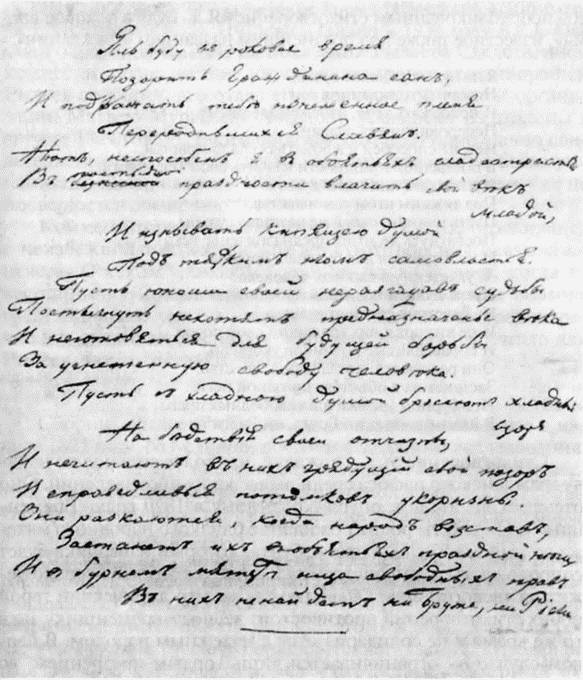 Яль буду въ роковое время
Позорить Гражданина санъ,
И подражать тебѣ изнеженное племя
Переродившихся Славянъ.
Нѣтъ, неспособенъ я въ объятьяхъ сладострастья
Въ постыдной праздности влачить свой вѣкъ
младой,
И изнывать кипящею душой
Подъ тяжкимъ игомъ самовластья.
Пусть юноши своей неразгадавъ судьбы
Постигнуть нехотятъ предназначенье вѣка
И неготовятся для будущей борьбы
За угнетенную свободу человѣка.
Пусть съ хладною душой бросаютъ хладный
взоръ
На бедствия своей отчизны,
И нечитаютъ въ нихъ грядущий свой позоръ
И справедливыя потомковъ укоризны.
Они раскаются, когда народъ возставъ,
Застанетъ ихъ въ объятьяхъ праздной неги
И въ бурномъ мятежѣ ища свободныхъ правъ
Въ нихъ ненайдетъ ни Брута, ни Риеги